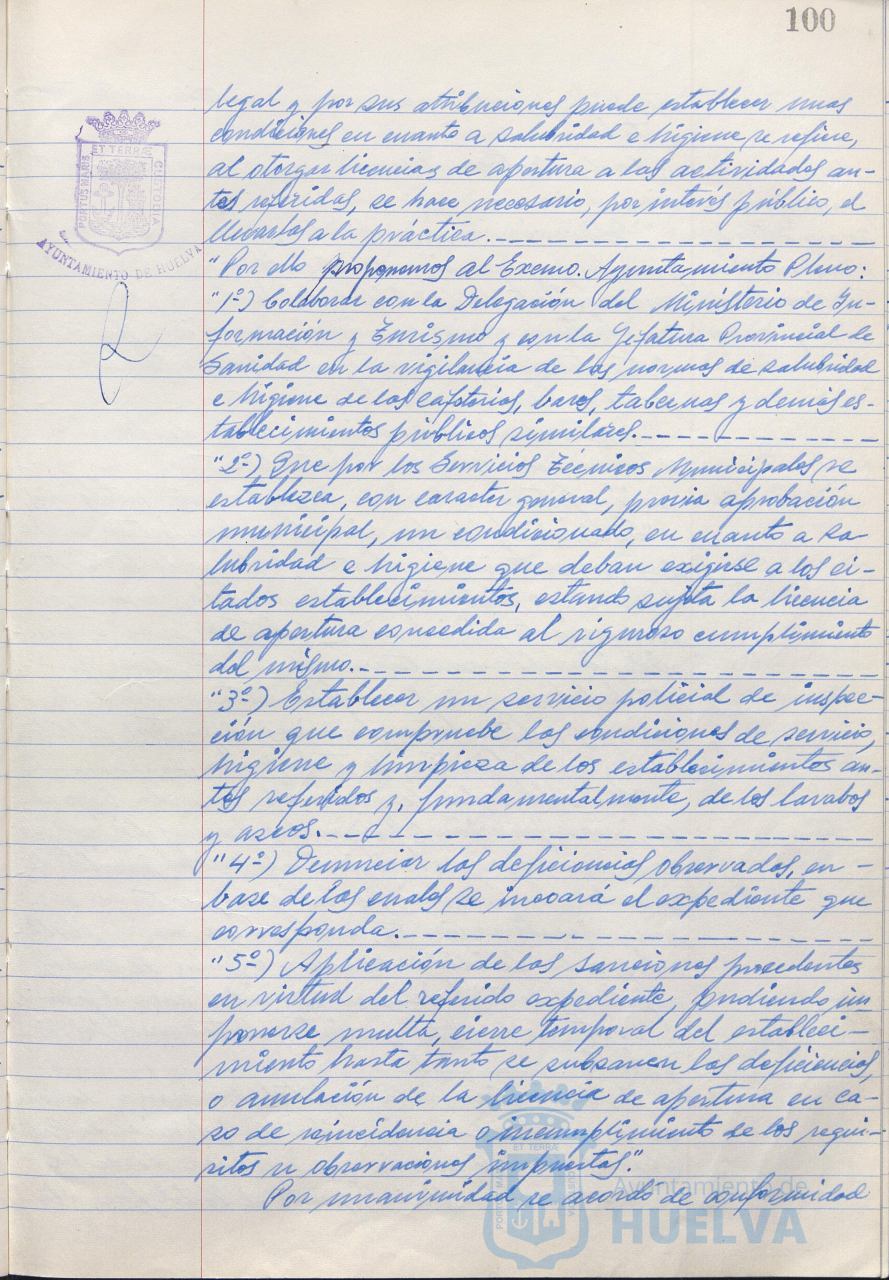 100
legal y por sus atribuciones puede establecer unas
condiciones en cuanto a salubridad e higiene se refiere,
al otorgar licencias de apertura a las actividades an-
tes referidas, se hace necesario, por interés público, el
llevarlos a la práctica.
"Por ello proponemos al Excmo. Ayuntamiento Pleno:
"1º) Colaborar con la Delegación del Ministerio de In-
formación y Turismo y con la Jefatura Provincial de
Sanidad en la vigilancia de las normas de salubridad
e higiene de las cafeterias, bares, tabernas y demás es-
tablecimientos públicos similares.
"2º) Que por los Servicios Técnicos Municipales se
establezca, con caracter general, previa aprobación
municipal, un condicionado, en cuanto a sa-
lubridad e higiene que deban exigirse a los ci-
tados establecimientos, estando sujeta la licencia
de apertura concedida al riguroso cumplimiento
del mismo.
"3º) Establecer un servicio policial de inspec-
ción que compruebe las condiciones de servicio,
higiene y limpieza de los establecimientos an-
tes referidos y, fundamentalmente, de los lavabos
y aseos.
"4º) Denunciar las deficiencias observadas, en-
base de las cuales se incoará el expediente que
corresponda.
"5º) Aplicación de las sanciones procedentes
en virtud del referido expediente, pudiendo im
ponerse multa, cierre temporal del estableci-
miento hasta tanto se subsanen las deficiencias,
o anulación de la licencia de apertura en ca-
so de reincidencia o incumplimiento de los requi-
sitos u observaciones impuestas".
Por unanimidad se acordó de conformidad
ET TERRÆ
PORTUS MARIS
CUSTODIA
AYUNTAMIENTO DE HUELVA
ET TERRÆ
Ayuntamiento de
HUELVA